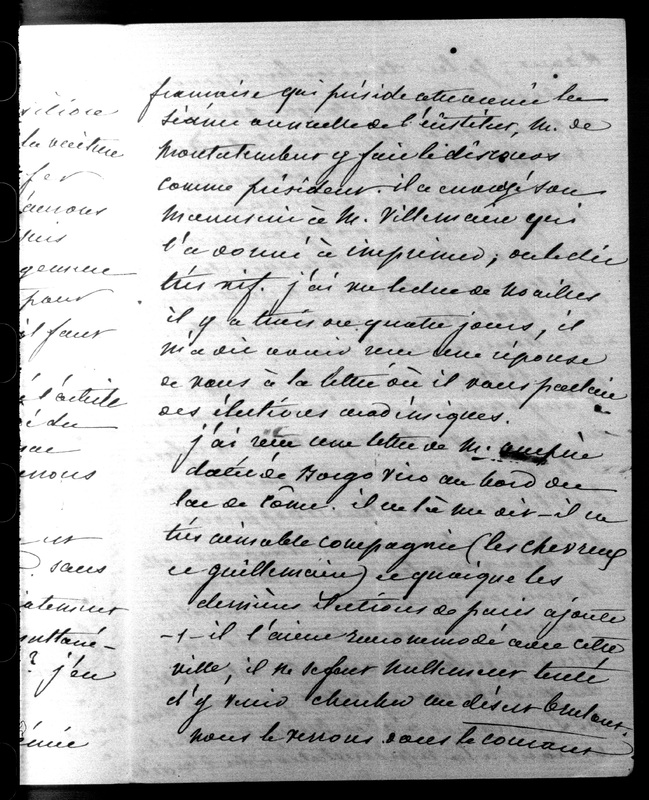 silions
la voiture
fer
amenons
puis
pour
il faut
l'article
du
sans
? j'en
française qui préside cette année la
séance annuelle de l'institut, M. de
Montalembert y fait le discours
comme président. il a envoyé son
manuscrit à M. Villemain qui
l'a donné à imprimer ; on le dit
très vif. j'ai vu le duc de Noailles
il y a trois ou quatre jours, il
m'a dit avoir reçu une réponse
de vous à la lettre où il vous parlait
des élections académiques.
j'ai reçu une lettre de M. Ampère
datée de Borgo Vico au bord du
lac de Côme. il est là me dit-il en
très aimable compagnie (les Chevreux
et Guillemain) et quoique les
dernières élections de paris ajoute
-t-il l'aient raccommodé avec cette
ville, il ne se sent nullement tenté
d'y venir chercher un désert brulant.
nous le verrons dans le courant